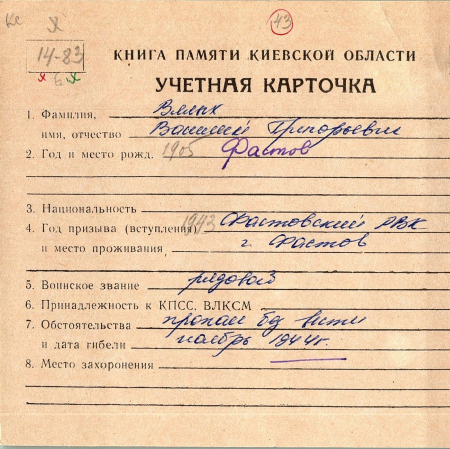 43
14-83
КНИГА ПАМЯТИ КИЕВСКОЙ ОБЛАСТИ
УЧЕТНАЯ КАРТОЧКА
1. Фамилия,
имя, отчество Василий Григорьевич
2. Год и место рожд. 1905 Фастов
3. Национальность
4. Год призыва (вступления) 1943 Фастовский РВК
и место проживания г. Фастов
5. Воинское звание рядовой
6. Принадлежность к КПСС, ВЛКСМ
7. Обстоятельства пропал б/вести
и дата гибели ноябрь 1944г.
8. Место захоронения